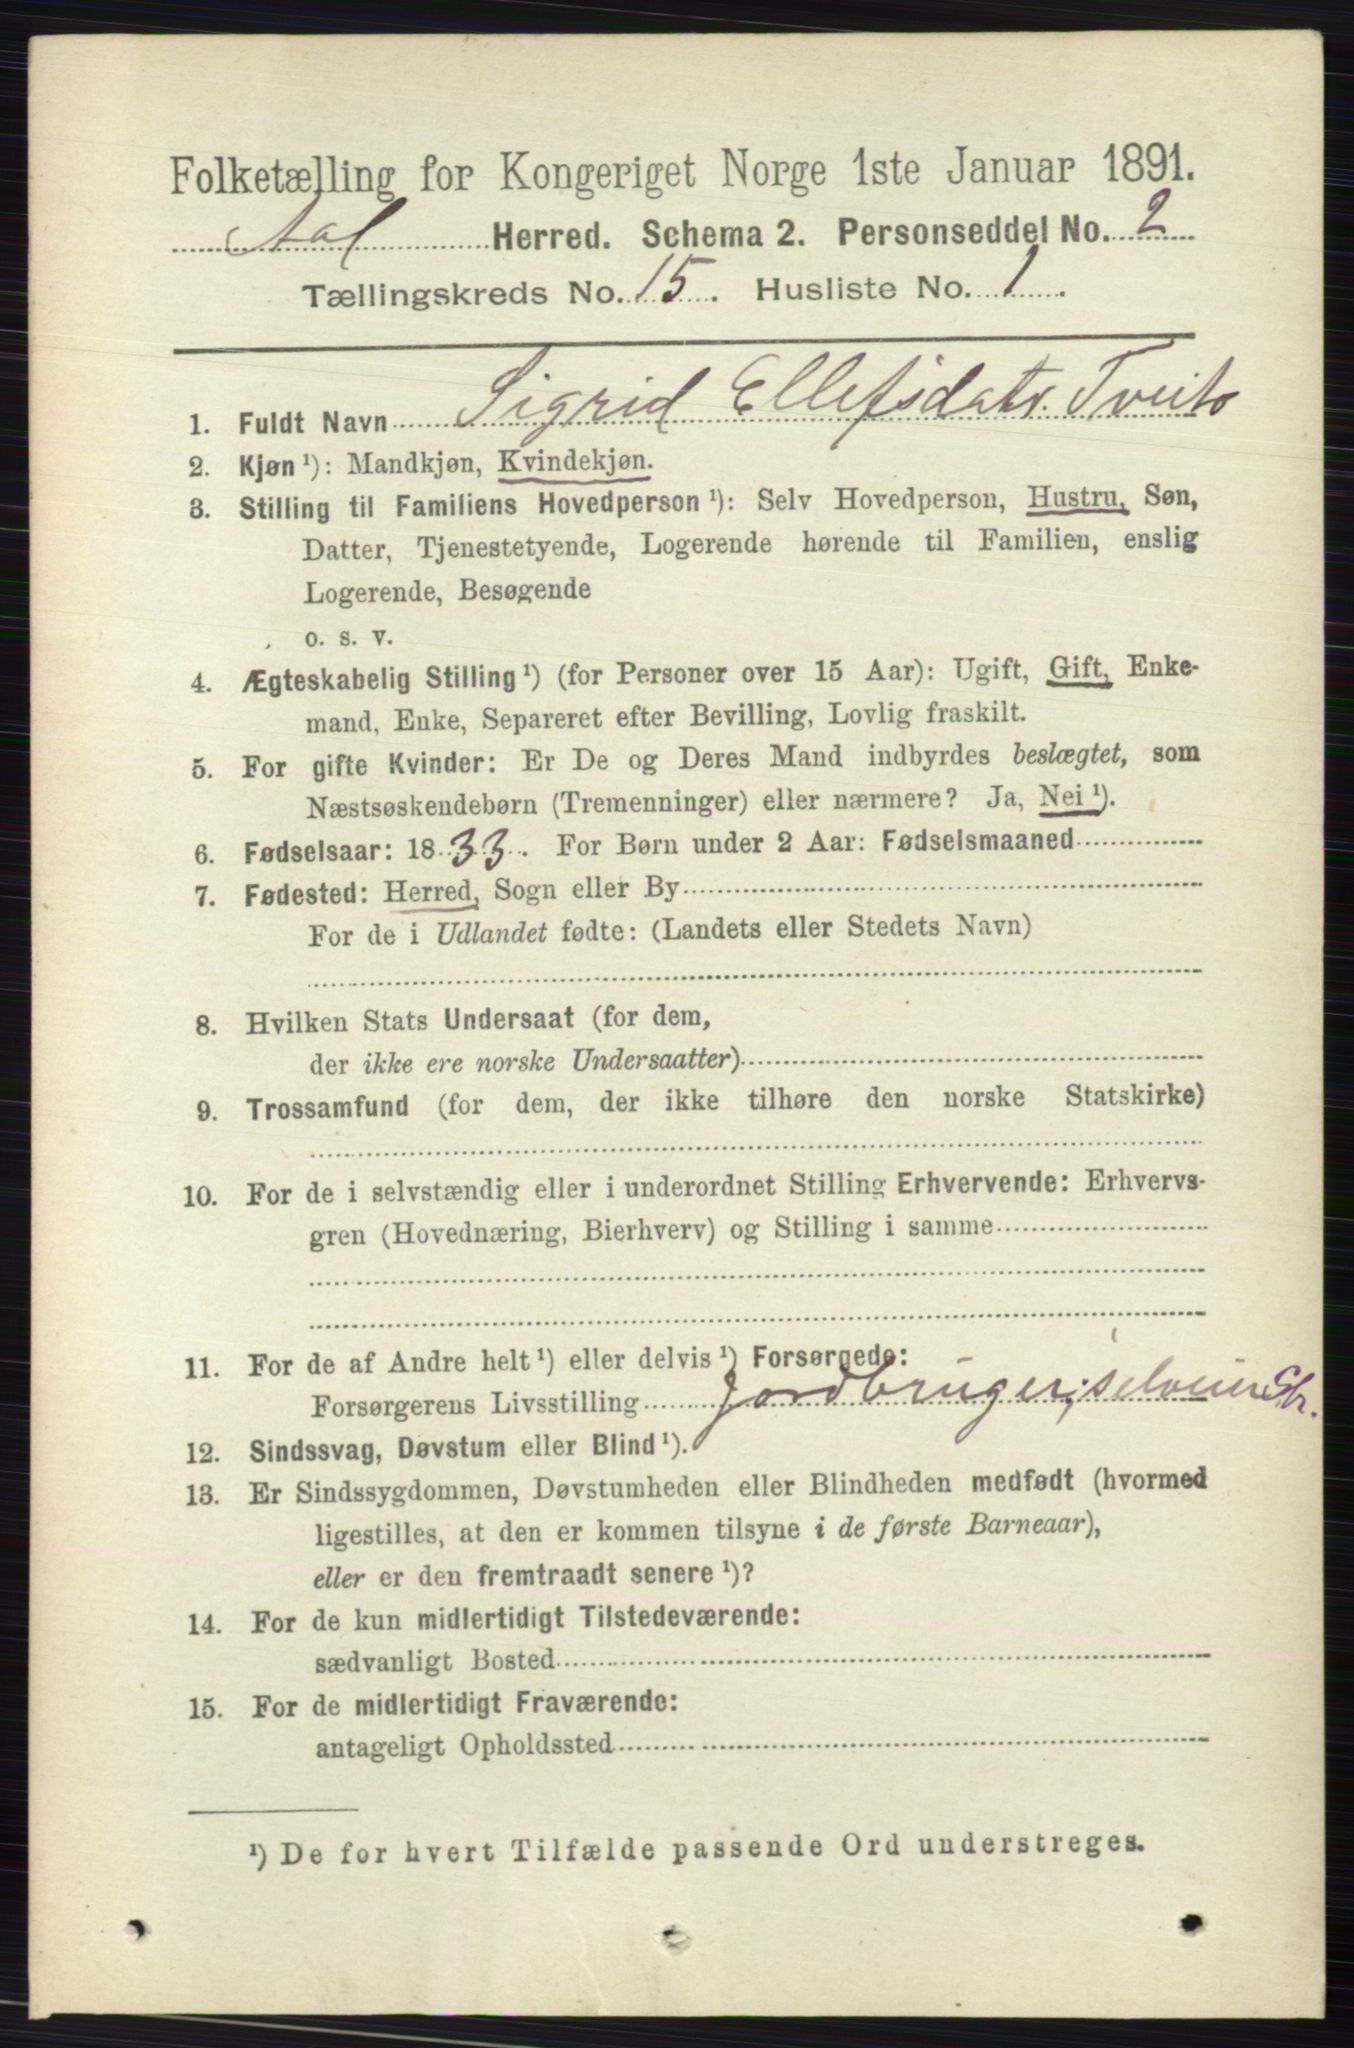 Folketælling for Kongeriget Norge 1ste Januar 1891.
Aal Herred. Schema 2. Personseddel No. 2
Tællingskreds No. 15. Husliste No. 1.
1. Fuldt Navn Sigrid Ellefsdatr. Tveito
2. Kjøn ¹): Mandkjøn, Kvindekjøn.
3. Stilling til Familiens Hovedperson ¹): Selv Hovedperson, Hustru, Søn,
Datter, Tjenestetyende, Logerende hørende til Familien, enslig
Logerende, Besøgende
o. s. v.
4. Ægteskabelig Stilling ¹) (for Personer over 15 Aar): Ugift, Gift, Enke-
mand, Enke, Separeret efter Bevilling, Lovlig fraskilt.
5. For gifte Kvinder: Er De og Deres Mand indbyrdes beslægtet, som
Næstsøskendebørn (Tremenninger) eller nærmere? Ja, Nei ¹).
6. Fødselsaar: 1833. For Børn under 2 Aar: Fødselsmaaned
7. Fødested: Herred, Sogn eller By
For de i Udlandet fødte: (Landets eller Stedets Navn)
8. Hvilken Stats Undersaat (for dem,
der ikke ere norske Undersaatter)
9. Trossamfund (for dem, der ikke tilhøre den norske Statskirke)
10. For de i selvstændig eller i underordnet Stilling Erhvervende: Erhvervs-
gren (Hovednæring, Bierhverv) og Stilling i samme
11. For de af Andre helt ¹) eller delvis ¹) Forsørgede:
Forsørgerens Livsstilling Jordbruger, selveier Str.
12. Sindssvag, Døvstum eller Blind ¹).
13. Er Sindssygdommen, Døvstumheden eller Blindheden medfødt (hvormed
ligestilles, at den er kommen tilsyne i de første Barneaar),
eller er den fremtraadt senere ¹)?
14. For de kun midlertidigt Tilstedeværende:
sædvanligt Bosted
15. For de midlertidigt Fraværende:
antageligt Opholdssted
¹) De for hvert Tilfælde passende Ord understreges.